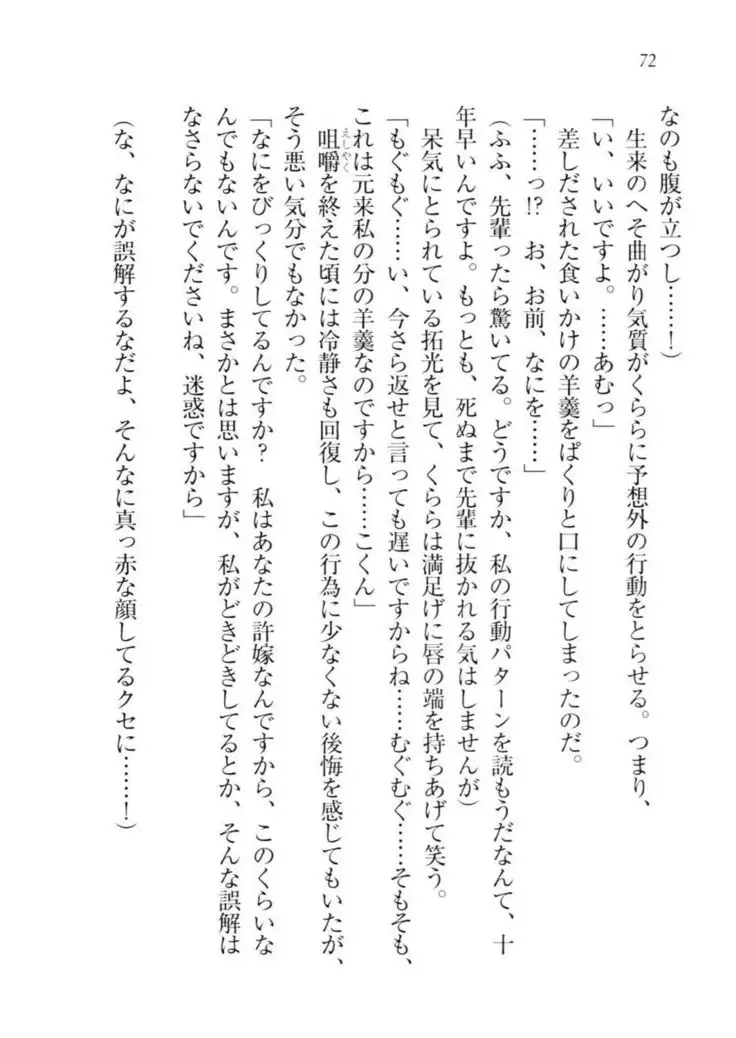 72
なのも腹が立つし……！）
生来のへそ曲がり気質がくららに予想外の行動をとらせる。つまり、
「い、いいですよ。……あむっ」
差しだされた食いかけの羊羹をぱくりと口にしてしまったのだ。
「……っ!?　お、お前、なにを……」
（ふふ、先輩ったら驚いてる。どうですか、私の行動パターンを読もうだなんて、十
年早いんですよ。もっとも、死ぬまで先輩に抜かれる気はしませんが）
呆気にとられている拓光を見て、くららは満足げに唇の端を持ちあげて笑う。
「もぐもぐ……い、今さら返せと言っても遅いですからね……むぐむぐ……そもそも、
これは元来私の分の羊羹なのですから……こくん」
咀嚼を終えた頃には冷静さも回復し、この行為に少なくない後悔を感じてもいたが、
えしやく
そう悪い気分でもなかった。
「なにをびっくりしてるんですか？　私はあなたの許嫁なんですから、このくらいな
んでもないんです。まさかとは思いますが、私がどきどきしてるとか、そんな誤解は
なさらないでくださいね、迷惑ですから」
（な、なにが誤解するなだよ、そんなに真っ赤な顔してるクセに……！）